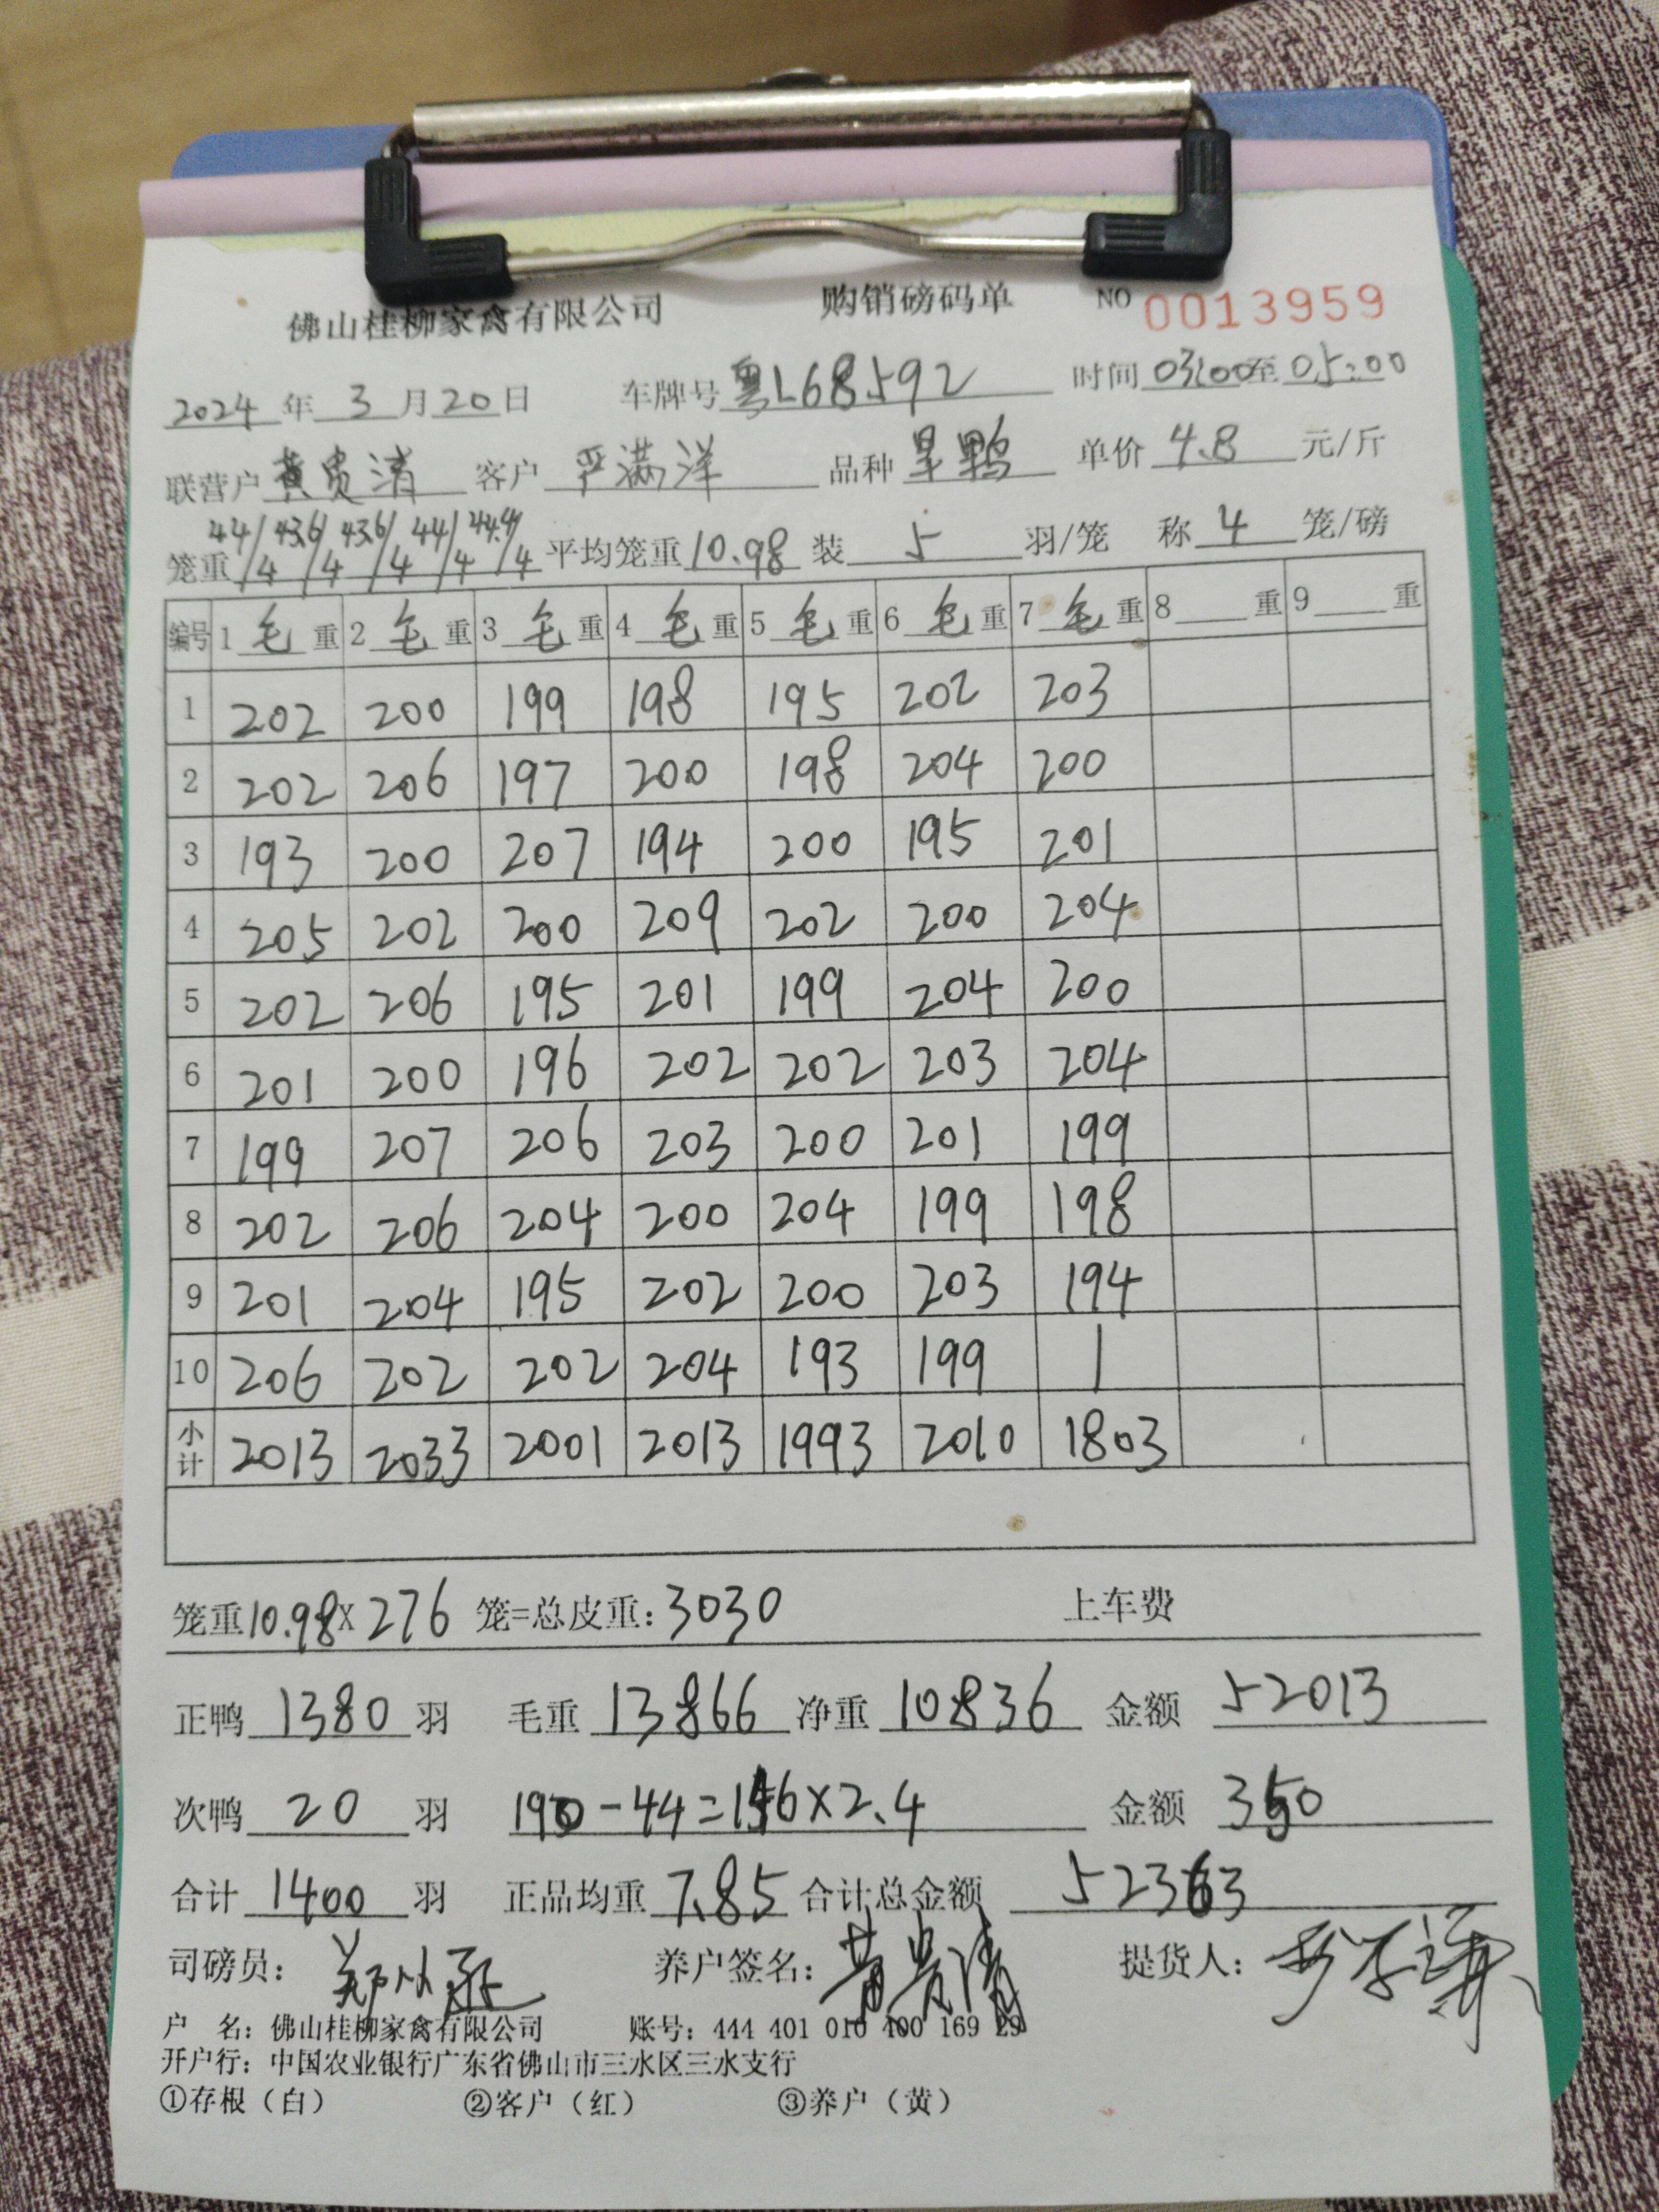 佛山桂柳家禽有限公司 购销磅码单 NO 0013959
2024 年 3 月 20 日 车牌号 粤L68592 时间 03:00 至 05:00
联营户 黄贵清 客户 严满洋 品种 旱鸭 单价 4.8 元/斤
笼重 44/4 43.6/4 43.6/4 44/4 44.4/4 平均笼重 10.98 装 5 羽/笼 称 4 笼/磅
编号 1 毛 重 2 毛 重 3 毛 重 4 毛 重 5 毛 重 6 毛 重 7 毛 重 8 重 9 重
1 202 200 199 198 195 202 203
2 202 206 197 200 198 204 200
3 193 200 207 194 200 195 201
4 205 202 200 209 202 200 204
5 202 206 195 201 199 204 200
6 201 200 196 202 202 203 204
7 199 207 206 203 200 201 199
8 202 206 204 200 204 199 198
9 201 204 195 202 200 203 194
10 206 202 202 204 193 199 1
小计 2013 2033 2001 2013 1993 2010 1803
笼重 10.98 X 276 笼=总皮重: 3030 上车费
正鸭 1380 羽 毛重 13866 净重 10836 金额 52013
次鸭 20 羽 190-44=146×2.4 金额 350
合计 1400 羽 正品均重 7.85 合计总金额 52363
司磅员: 养户签名: 黄贵清 提货人:
户 名: 佛山桂柳家禽有限公司 账号: 444 401 010 400 169 29
开户行: 中国农业银行广东省佛山市三水区三水支行
①存根（白） ②客户（红） ③养户（黄）